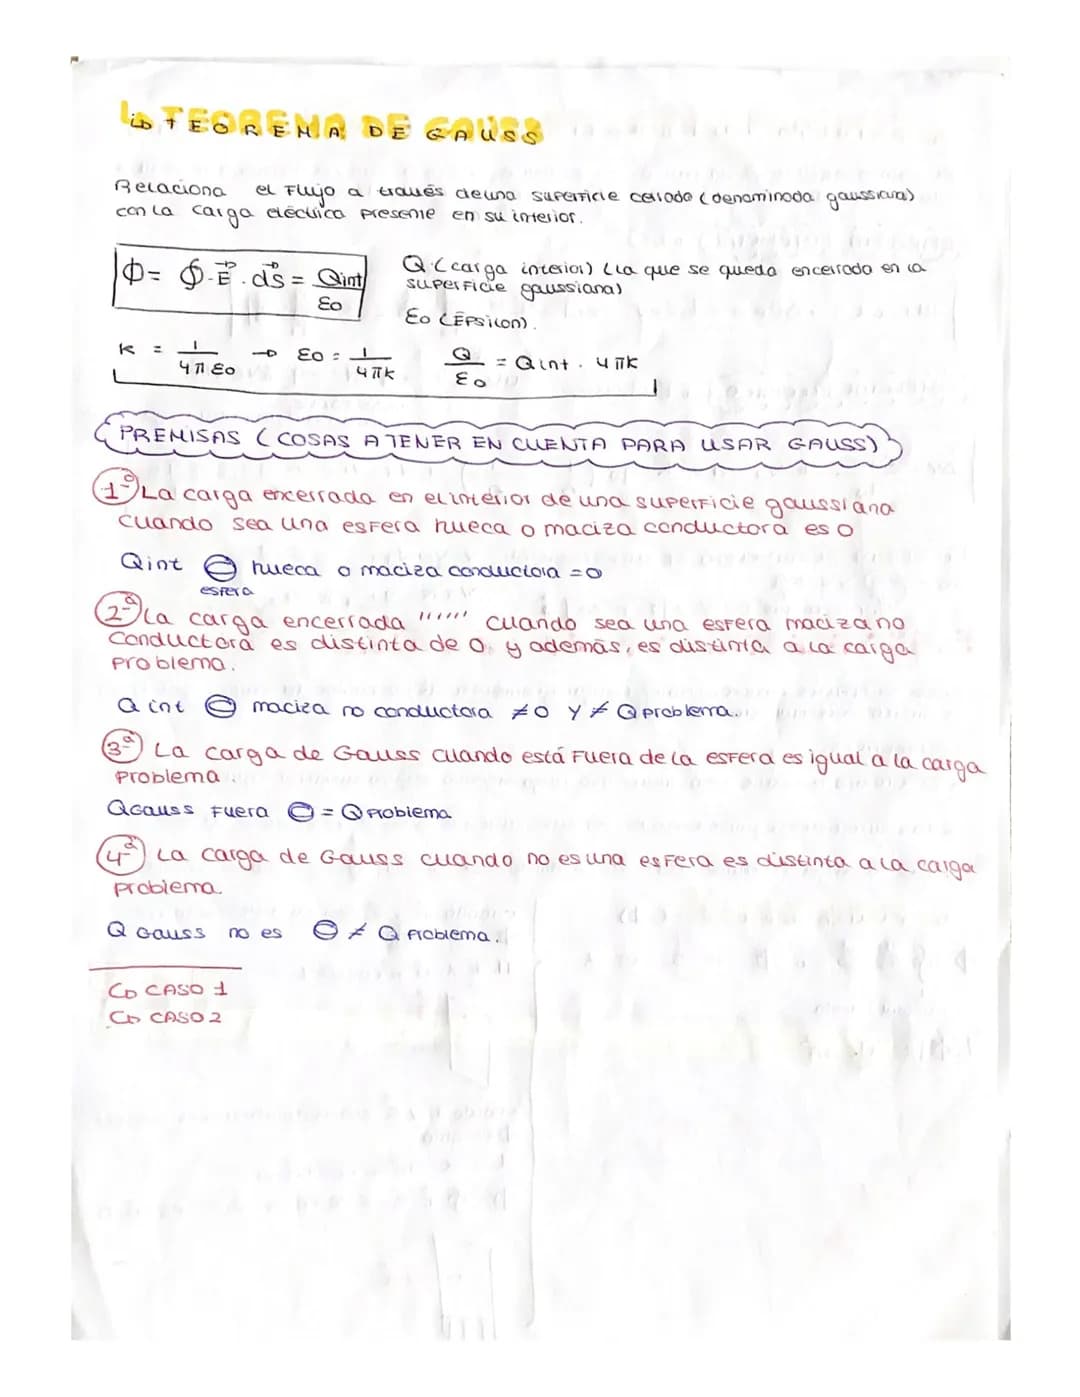 TEOREMA DE GAUSS
Relaciona el Flujo a través de una superficie cerrada (denominada gaussiana)
con la carga eléctrica presente en su interior.
Φ = ∮·E⃗ · dS⃗ = Qint/εo
Q (carga interior) (la que se queda encerrada en la
superficie gaussiana)
εo (Épsilon).
K = 1/4πεo → εo = 1/4πk Q/εo = Qint · 4πK
PREMISAS (COSAS A TENER EN CUENTA PARA USAR GAUSS)
1ª La carga encerrada en el interior de una superficie gaussiana
cuando sea una esfera hueca o maciza conductora es 0
Qint ⊖ hueca o maciza conductora = 0
esfera
2ª La carga encerrada '''''' cuando sea una esfera maciza no
conductora es distinta de 0, y además, es distinta a la carga
problema.
Q int ⊖ maciza no conductora ≠ 0 Y ≠ Q problema.
3ª La carga de Gauss cuando está Fuera de la esfera es igual a la carga
problema
QGauss Fuera ⊖ = Q Problema
4ª La carga de Gauss cuando no es una esfera es distinta a la carga
problema
Q Gauss no es ⊖ ≠ Q Problema.
CASO 1
CASO 2